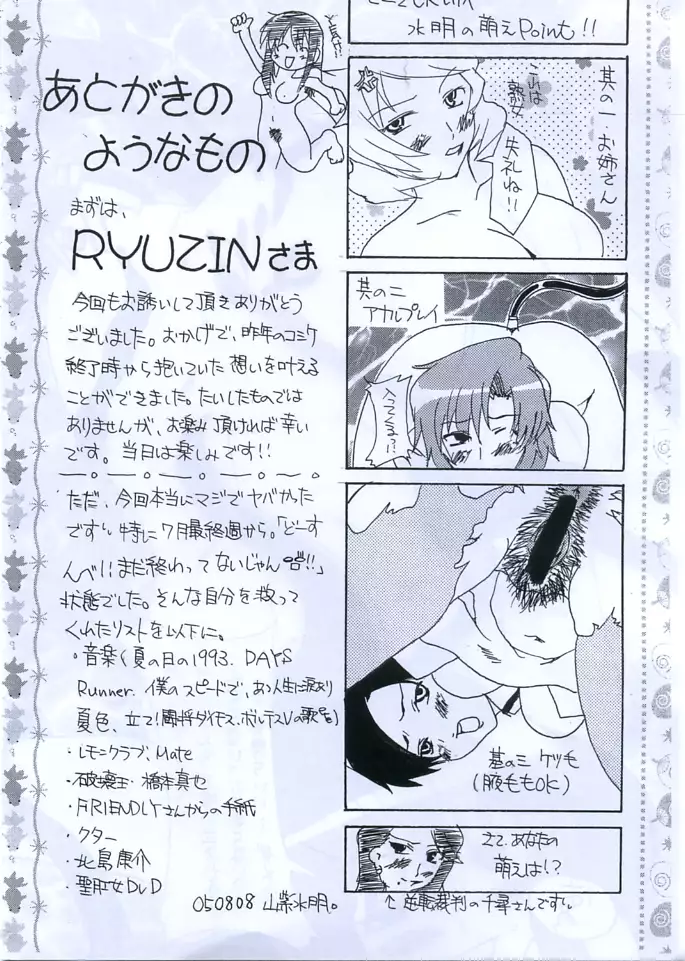 あとがきの
ようなもの
まずは、
RYUZINさま
今回もお誘いして頂きありがとう
ございました。おかげで、昨年のコミケ
終了時から抱いていた想いを叶える
ことができました。たいしたものでは
ありませんが、お楽しみ頂ければ幸い
です。当日は楽しみです!!
ただ、今回本当にマジでヤバかった
です〜特に7月最終週から。「どーす
んべ!!まだ終わってないじゃん!!」
状態でした。そんな自分を救って
くれたリストを以下に。
・音楽(夏の日の1993. DAYS
Runner. 僕のスピードで、あゝ人生に涙あり
夏色、立て!闘将ダイモス、ボルテスVの歌
・レモンクラブ、Mate
・破壊王・橋本真也
・FRIENDLYさんからの手紙
・クター
・北島康介
・聖肛女DVD
050808 山紫水明。
水明の萌えPoint!!
其の一・お姉さん
これは
熟女
失礼ね!!
其の二
アナルプレイ
其の三 ケツ毛
(腋毛もOK)
さて、あなたの
萌えは!?
↑逆転裁判の千尋さんです〜